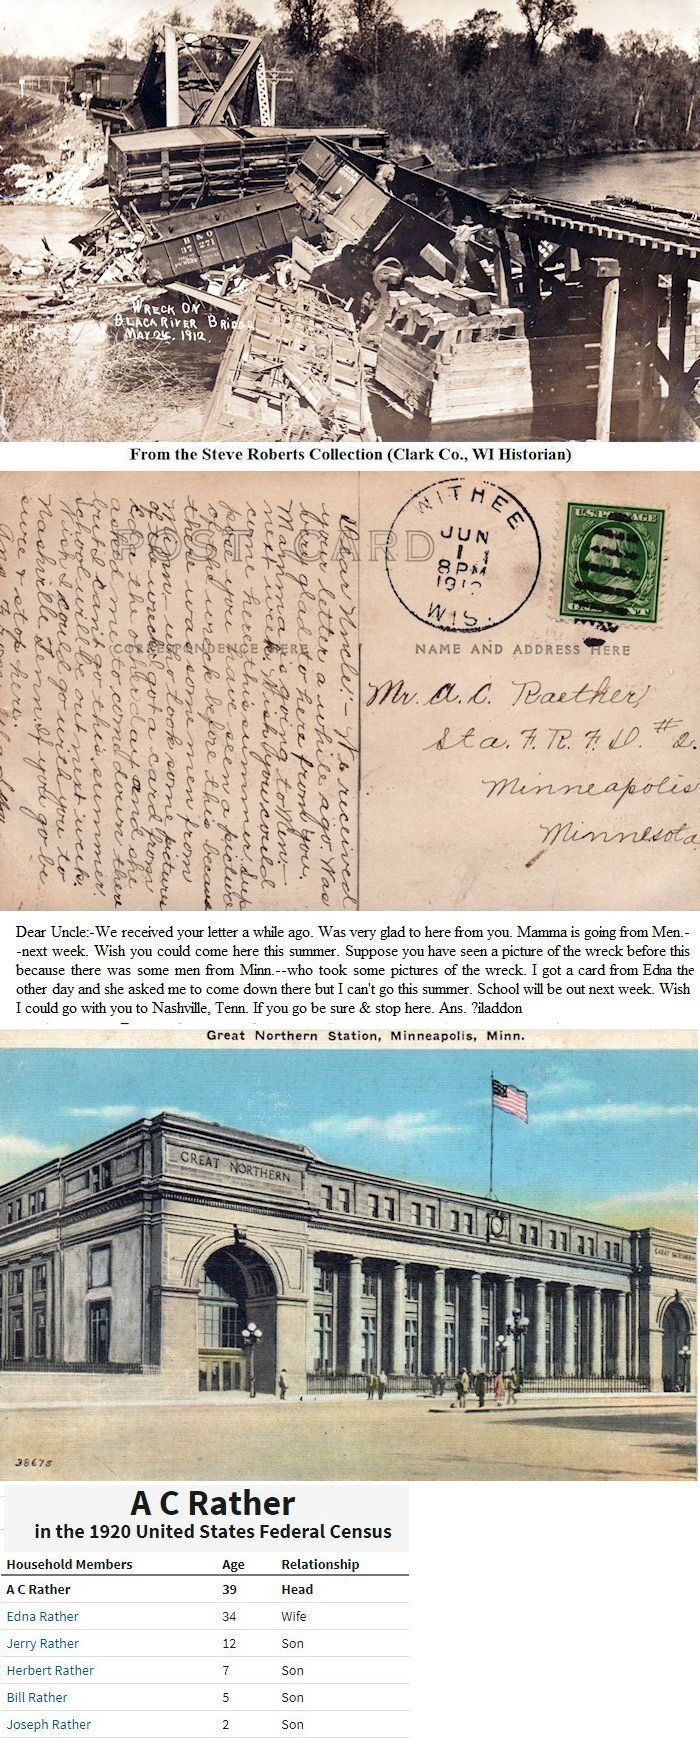 B & O
37 271
WRECK ON
BLACK RIVER BRIDGE
MAY 24, 1912.
From the Steve Roberts Collection (Clark Co., WI Historian)
POST CARD
CORRESPONDENCE HERE
NAME AND ADDRESS HERE
WITHEE
JUN
1
8 PM
191
WIS.
U.S. POSTAGE
Dear Uncle:- We received
your letter a while ago. Was
very glad to here from you.
Mamma is going to Men.-
next week. Wish you could
come here this summer. Sup-
pose you have seen a picture
of the wreck before this because
there was some men from
Minn.- who took som pictures
of the wreck. I got a card from
Edna the other day and she
asked me to come down there
but I can't go this summer.
School will be out next week.
Wish I could go with you to
Nashville, Tenn. If you go be
sure & stop here.
Ans.
Mr. A. C. Raether,
Sta. F. R. F. D. #2.
Minneapolis
Minnesota
Dear Uncle:-We received your letter a while ago. Was very glad to here from you. Mamma is going from Men.-
-next week. Wish you could come here this summer. Suppose you have seen a picture of the wreck before this
because there was some men from Minn.--who took some pictures of the wreck. I got a card from Edna the
other day and she asked me to come down there but I can't go this summer. School will be out next week. Wish
I could go with you to Nashville, Tenn. If you go be sure & stop here. Ans. ?iladdon
Great Northern Station, Minneapolis, Minn.
GREAT NORTHERN
GREAT NORTHERN
38675
A C Rather
in the 1920 United States Federal Census
Household Members Age Relationship
A C Rather 39 Head
Edna Rather 34 Wife
Jerry Rather 12 Son
Herbert Rather 7 Son
Bill Rather 5 Son
Joseph Rather 2 Son